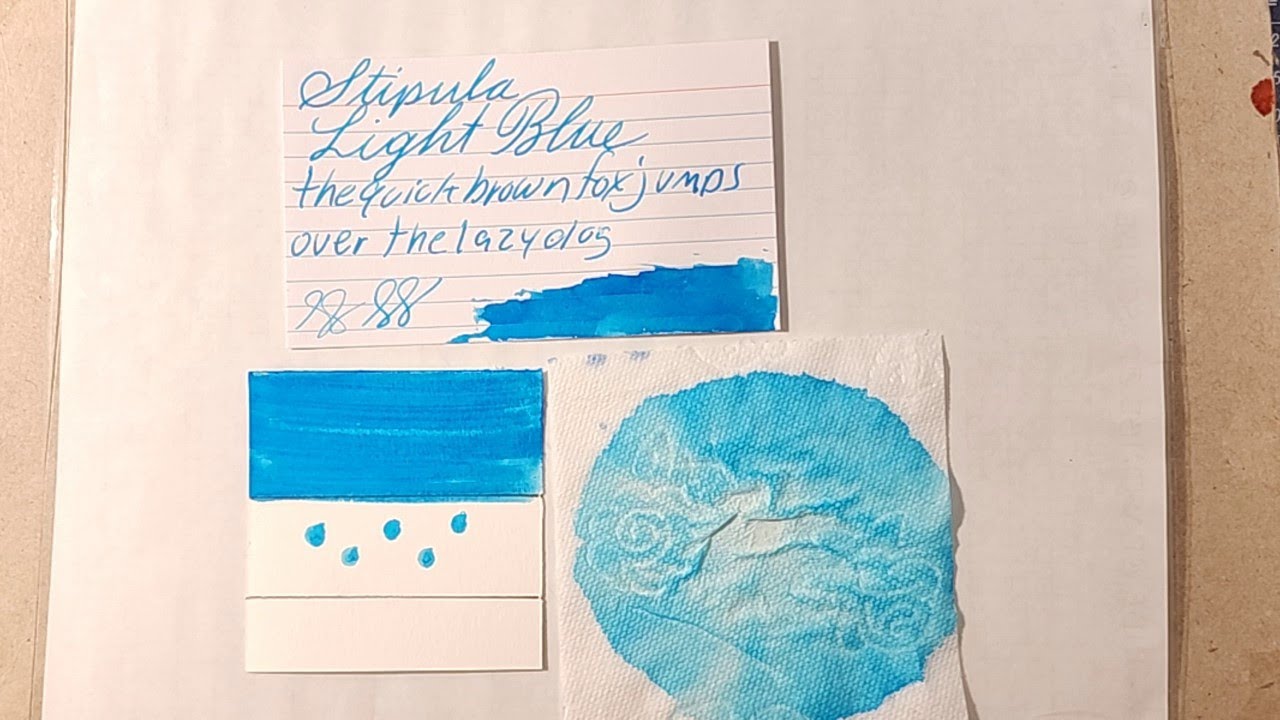 Stipula
Light Blue
the quick brown fox jumps
over the lazy dog